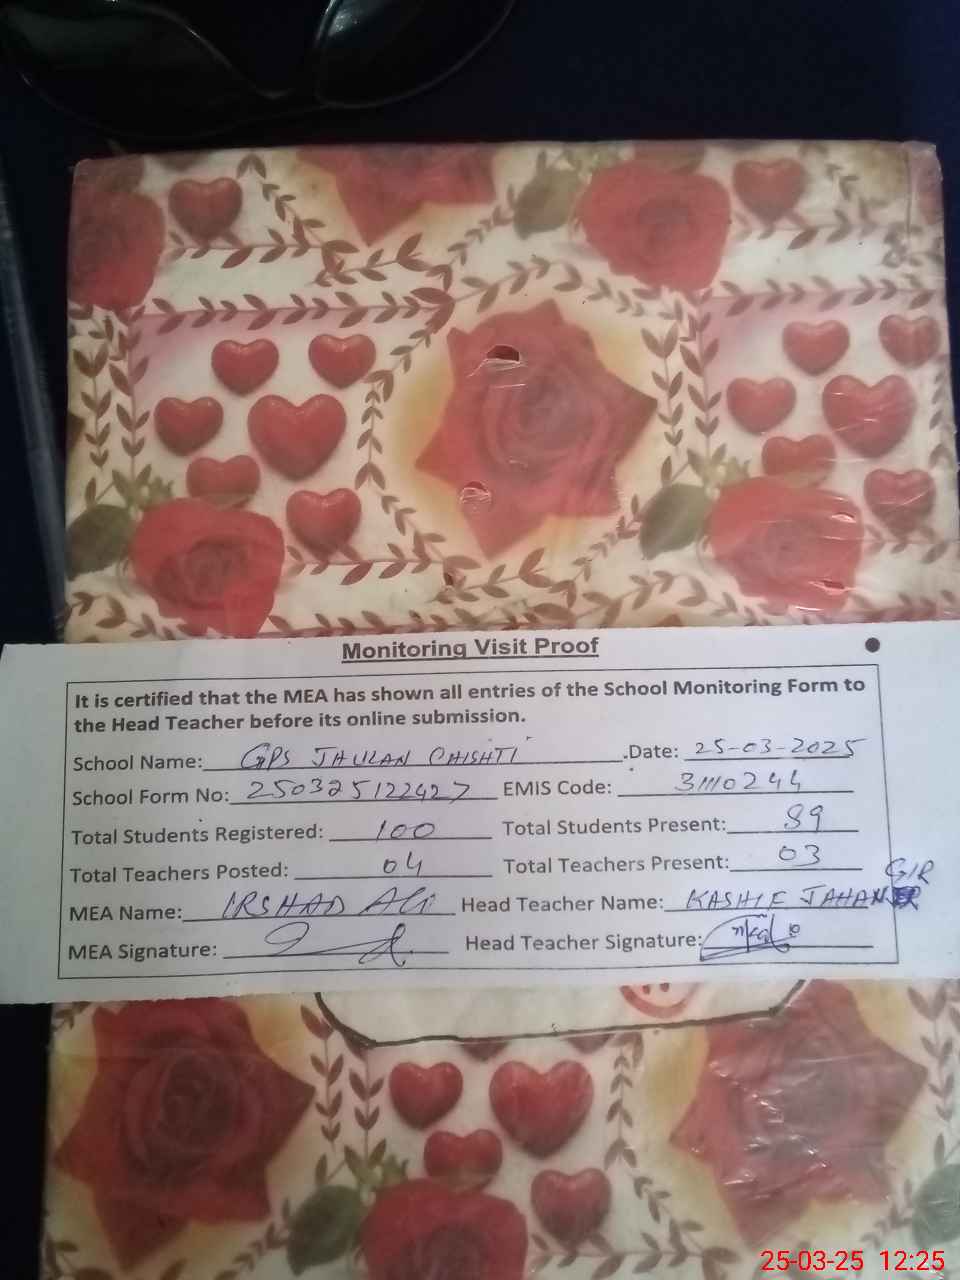 Monitoring Visit Proof
It is certified that the MEA has shown all entries of the School Monitoring Form to
the Head Teacher before its online submission.
School Name: GPS JHULAN CHISHTI Date: 25-03-2025
School Form No: 250325122427 EMIS Code: 31110244
Total Students Registered: 100 Total Students Present: 89
Total Teachers Posted: 04 Total Teachers Present: 03
MEA Name: IRSHAD ALi Head Teacher Name: KASHIF JAHANGIR
MEA Signature: Head Teacher Signature:
25-03-25 12:25